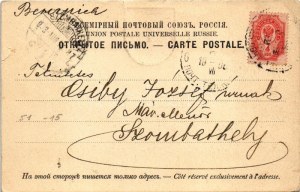 Венгрія
ВСЕМІРНЫЙ ПОЧТОВЫЙ СОЮЗЪ. РОССІЯ.
UNION POSTALE UNIVERSELLE RUSSIE.
ОТКРЫТОЕ ПИСЬМО. — CARTE POSTALE.
Tekintetes
Csiby József úrnak
Máv.
Szombathely
На этой сторонѣ пишется только адресъ. — Côté réservé exclusivement à l'adresse.